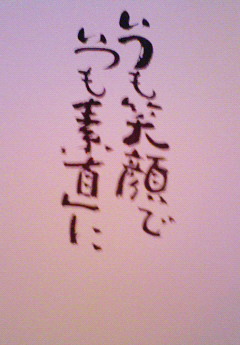 いつも笑顔で
いつも素直に